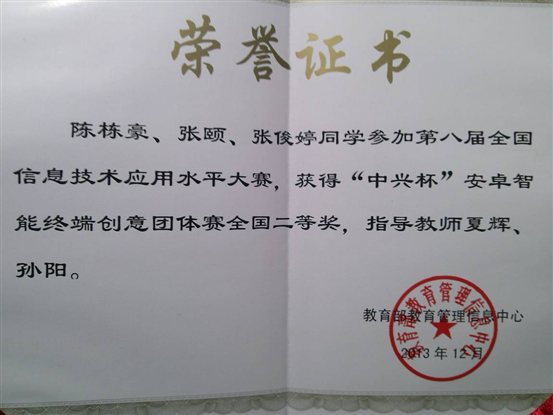 荣誉证书
陈栋豪、张颐、张俊婷同学参加第八届全国
信息技术应用水平大赛，获得“中兴杯”安卓智
能终端创意团体赛全国二等奖，指导教师夏辉、
孙阳。
教育部教育管理信息中心
2013年12月
教育部教育管理信息中心